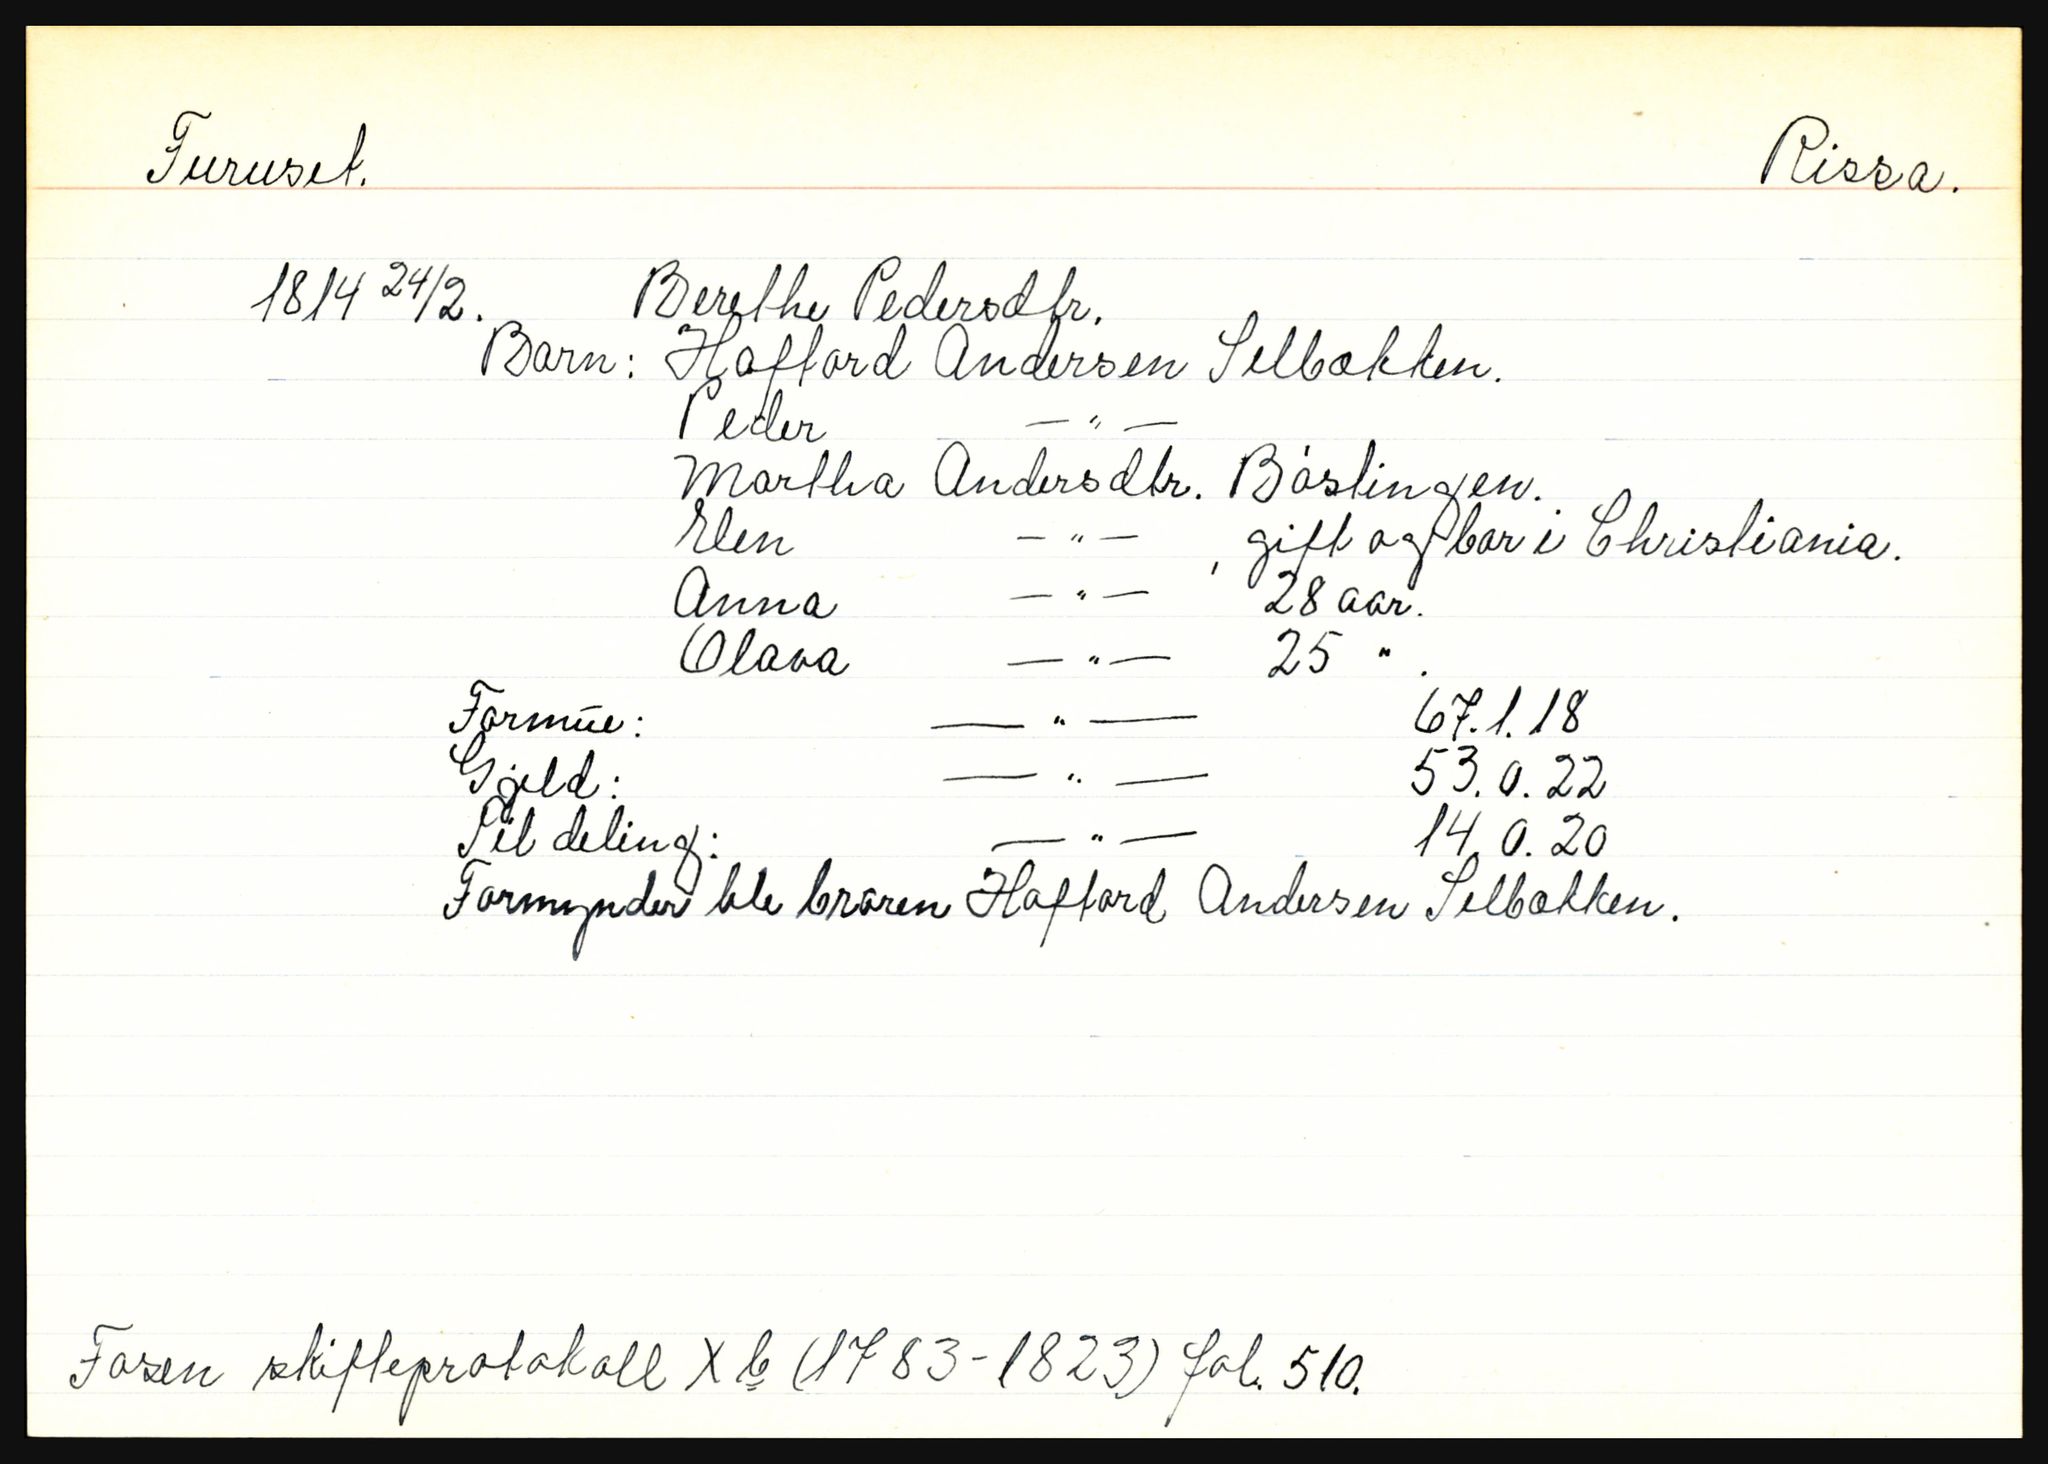 Furuset. Rissa.
1814 24/2. Berethe Pedersdtr.
Barn: Haftord Andersen Selbakken.
Peder — " —
Martha Andersdtr. Böslingen.
Elen — " — , gift og bor i Christiania.
Anna — " — 28 aar.
Olava — " — 25 " .
Formue: — " — 67.1.18
Gjeld: — " — 53.0.22
Til deling: — " — 14.0.20
Formynder ble broren Haftord Andersen Selbakken.
Fosen skifteprotokoll X b (1783-1823) fol. 510.